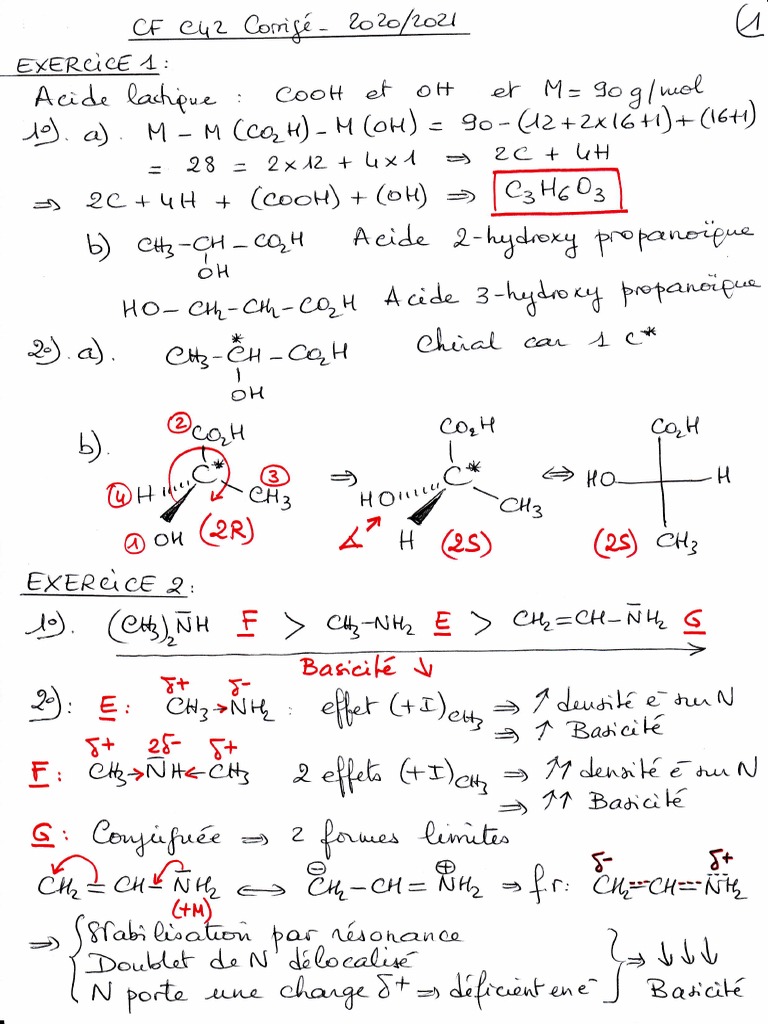 CF C42 Corrigé - 2020/2021
1
EXERCICE 1 :
Acide lactique : COOH et OH et M = 90 g/mol
1°). a). M - M(CO2H) - M(OH) = 90 - (12+2x16+1) + (16+1)
= 28 = 2x12 + 4x1 ⇒ 2C + 4H
⇒ 2C + 4H + (COOH) + (OH) ⇒ C3H6O3
b) CH3-CH-CO2H Acide 2-hydroxy propanoïque
OH
HO-CH2-CH2-CO2H Acide 3-hydroxy propanoïque
2°). a). CH3-CH-CO2H Chiral car 1 C*
*
OH
b).
② CO2H
④ H C* ③ CH3
① OH (2R)
⇒
CO2H
HO C* CH3
H (2S)
⇔
CO2H
HO H
(2S) CH3
EXERCICE 2 :
1°). (CH3)2NH F > CH3-NH2 E > CH2=CH-NH2 G
Basicité ↓
2°) : E : δ+ δ-
CH3→NH2 : effet (+I)CH3 ⇒ ↑ densité e- sur N
⇒ ↑ Basicité
δ+ 2δ- δ+
F : CH3→NH←CH3 2 effets (+I)CH3 ⇒ ↑↑ densité e- sur N
⇒ ↑↑ Basicité
G : Conjuguée ⇒ 2 formes limites
⊖ ⊕ δ- δ+
CH2=CH-NH2 ⟷ CH2-CH=NH2 ⇒ f.r : CH2=CH=NH2
(+M)
⇒ { Stabilisation par résonance
Doublet de N délocalisé } ⇒ ↓↓↓
N porte une charge δ+ ⇒ déficient en e- Basicité